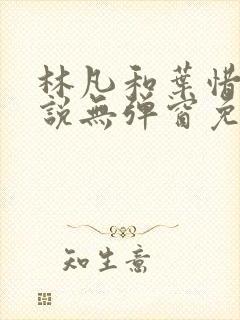 林凡和葉惜
說無彈窗免
知生意